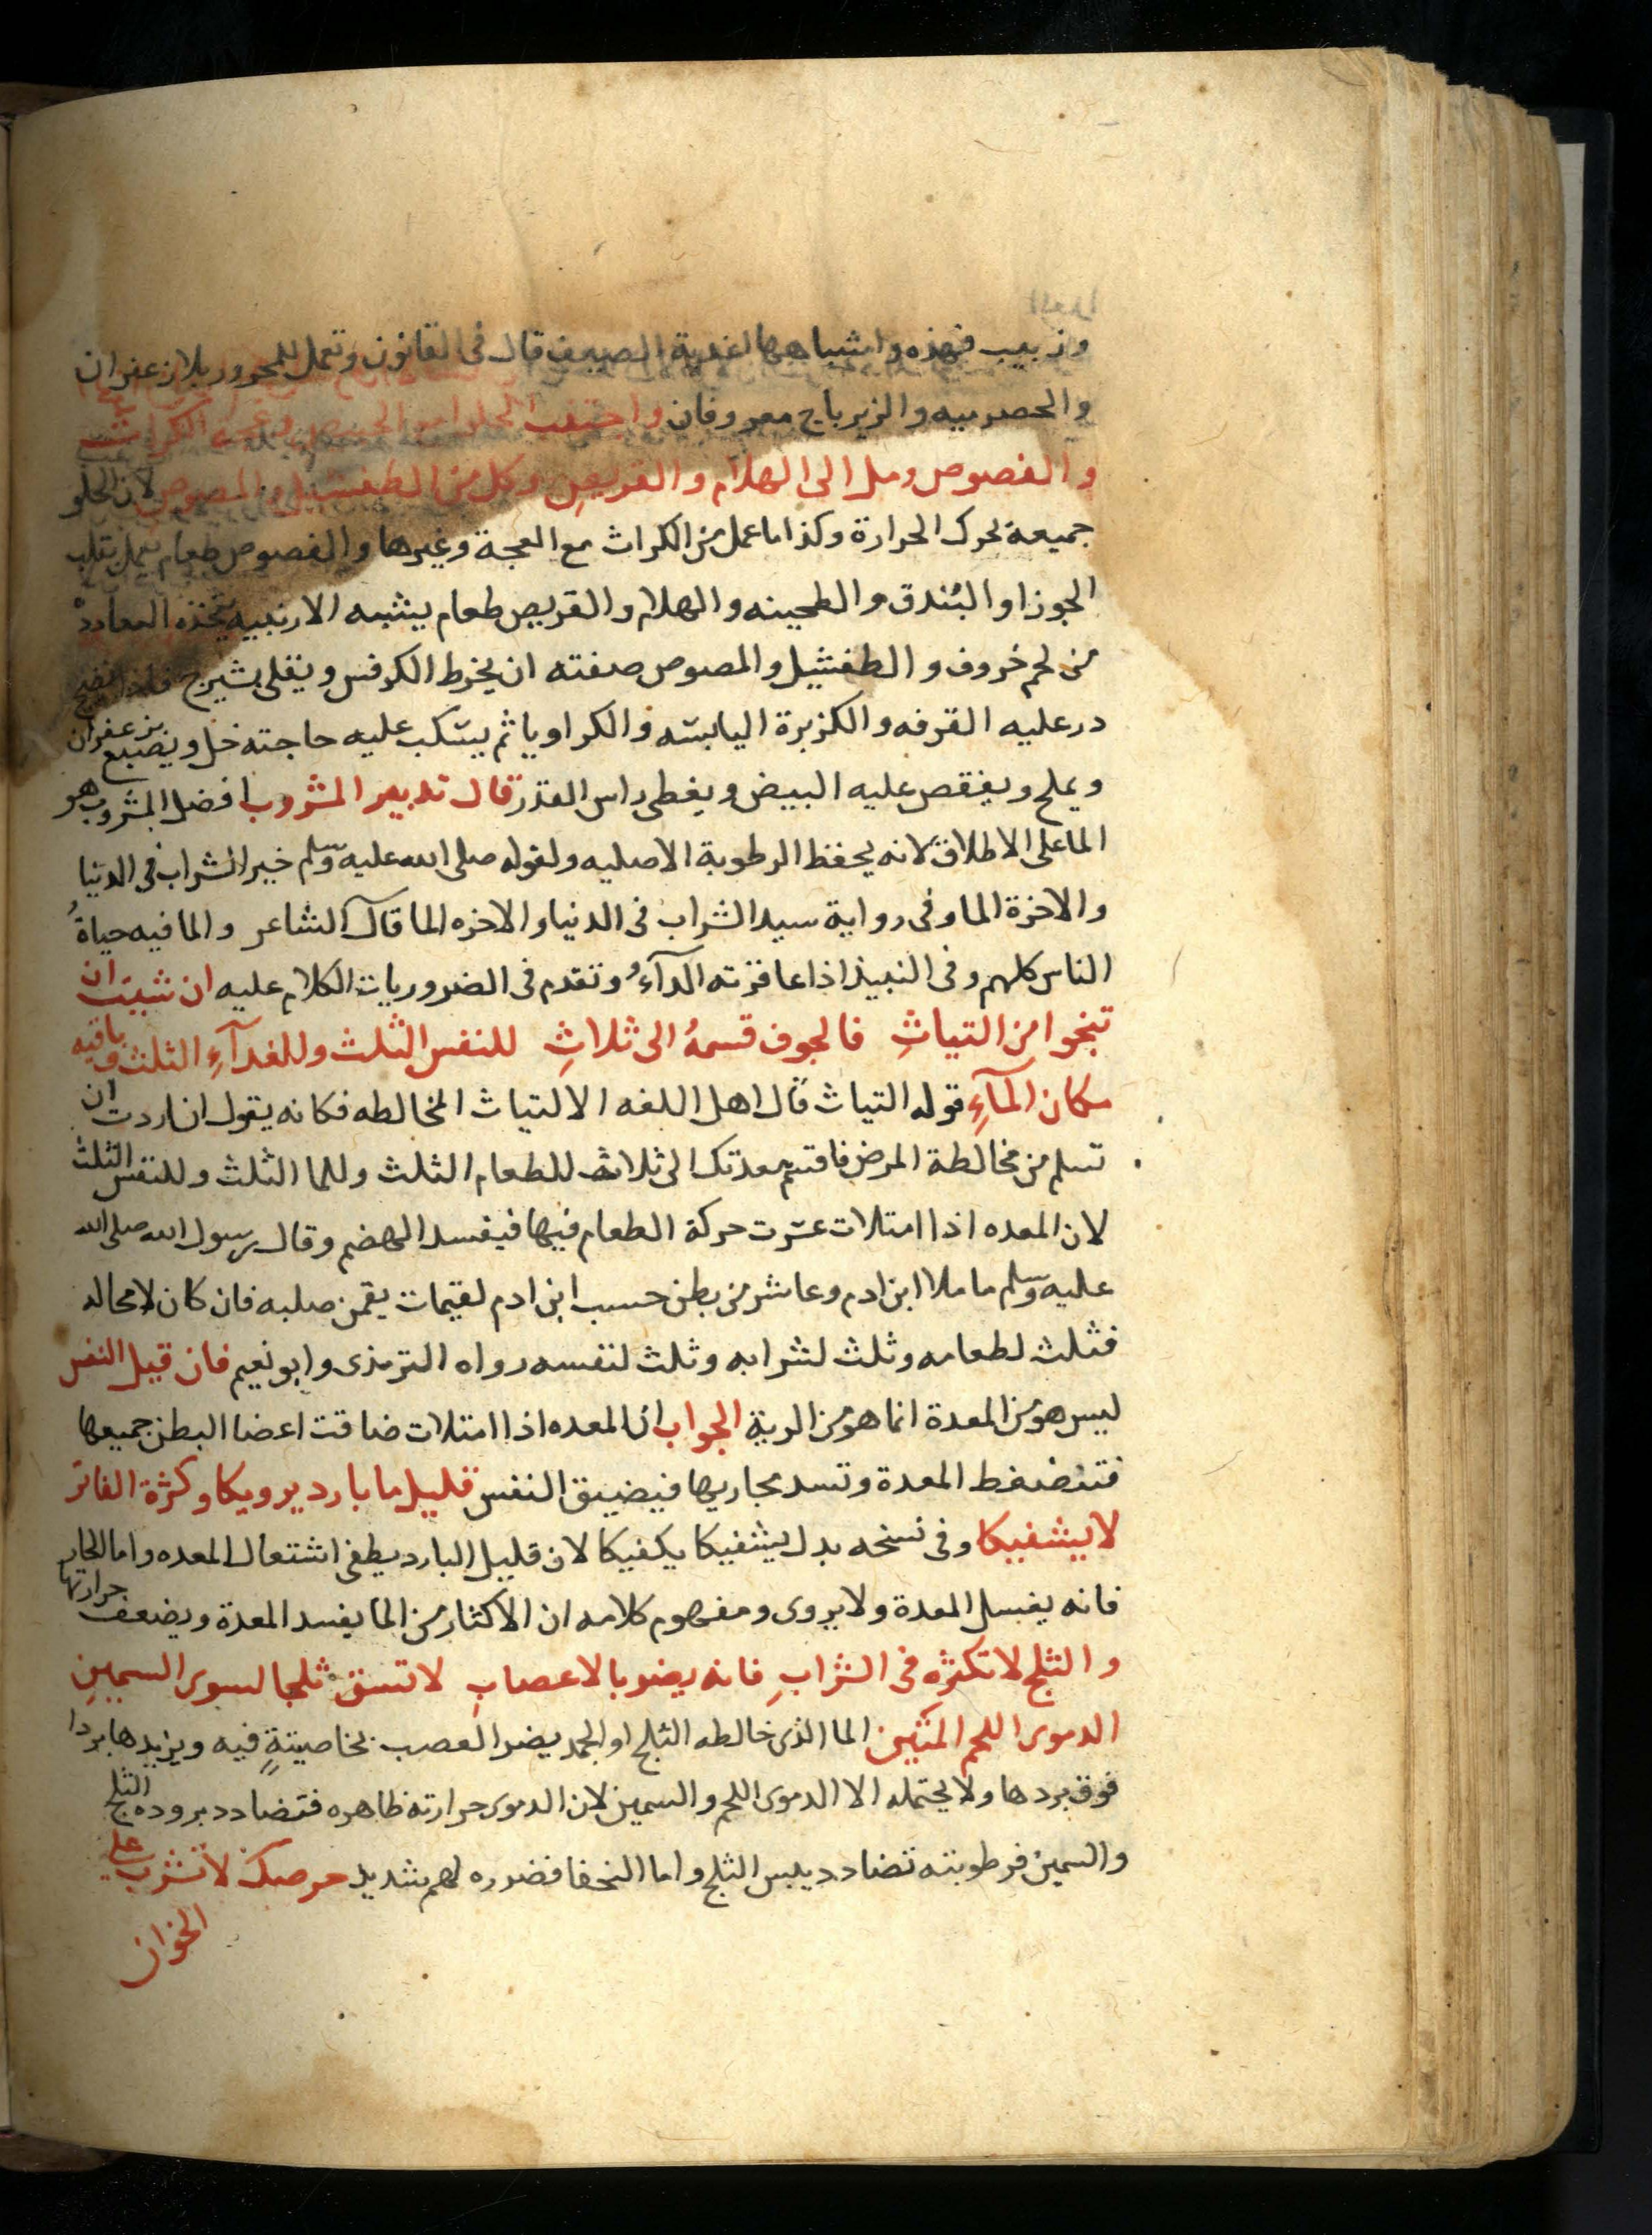 وزبيب فهذه واشباهها اغذية الصيف قال فى القانون وتعمل للمحرور بلا زعفران
والحصرميه والزيرباج معروفان واجتنب الحلوا
والفصوص ومل الى الهلام والقريص وكل من الطفشيل والمصوص لان الحلو
جميعه يحرك الحرارة وكذا ما عمل من الكراث مع العجة وغيرها والفصوص طعام يعمل بقلب
الجوز او البندق والطحينه والهلام والقريص طعام يشبه الارنبيه يتخذه المغاربه
من لحم خروف والطفشيل والمصوص صفته ان يخرط الكرفس ويقلى بشيرج فاذا نضج
در عليه القرفه والكزبرة اليابسه والكراويا ثم يسكب عليه حاجته خل ويصبغ بزعفران
ويملح ويفقص عليه البيض ويغطى راس القدر قال تدبير المشروب افضل المشروب هو
الما على الاطلاق لانه يحفظ الرطوبة الاصليه ولقوله صلى الله عليه وسلم خير الشراب فى الدنيا
والاخرة الما وفى رواية سيد الشراب فى الدنيا والاخره الما قال الشاعر والما فيه حياةُ
الناس كلهم وفى النبيذ اذا عاقرته الدآءُ وتقدم فى الضروريات الكلام عليه ان شيت ان
تنجوا من التياثِ فالجوف قسمهُ الى ثلاثِ للنفس الثلث وللغدآءِ الثلث وباقيه
مكان المآءِ قوله التياث قال اهل اللغه الالتياث المخالطه فكانه يقول ان اردت ان
تسلم من مخالطة المرض فاقسم معدتك الى ثلاث للطعام الثلث وللما الثلث وللنفس الثلث
لان المعده اذا امتلات عسرت حركة الطعام فيها فيفسد الهضم وقال رسول الله صلى الله
عليه وسلم ما ملا ابن ادم وعا شر من بطن حسب ابن ادم لقيمات يقمن صلبه فان كان لا محاله
فثلث لطعامه وثلث لشرابه وثلث لنفسه رواه الترمذى وابو نعيم فان قيل النفس
ليس هو من المعدة انما هو من الرية الجواب ان المعده اذا امتلات ضاقت اعضا البطن جميعها
فتنضغط المعدة وتسد مجاريها فيضيق النفس قليل ما بارد يرويكا وكثرة الفاتر
لا يشفيكا وفى نسخه بدل يشفيكا يكفيكا لان قليل البارد يطفى اشتعال المعده واما الحار
فانه يغسل المعدة ولا يروى ومفهوم كلامه ان الاكثار من الما يفسد المعدة ويضعف حرارتها
والثلج لا تكثره فى الشرابِ فانه يضر بالاعصابِ لا تسق ثلجا لسوى السمينِ
الدموى اللحم المتين الما الذى خالطه الثلج او الجمد يضر العصب بخاصيتةٍ فيه ويزيدها بردا
فوق بردها ولا يحتمله الا الدموى اللحم والسمين لان الدموى حرارته ظاهره فتضادد بروده الثلج
والسمين فرطوبته تضادد يبس الثلج واما النحفا فضرره لهم شديد حرصك لا تشرب على
الخوان